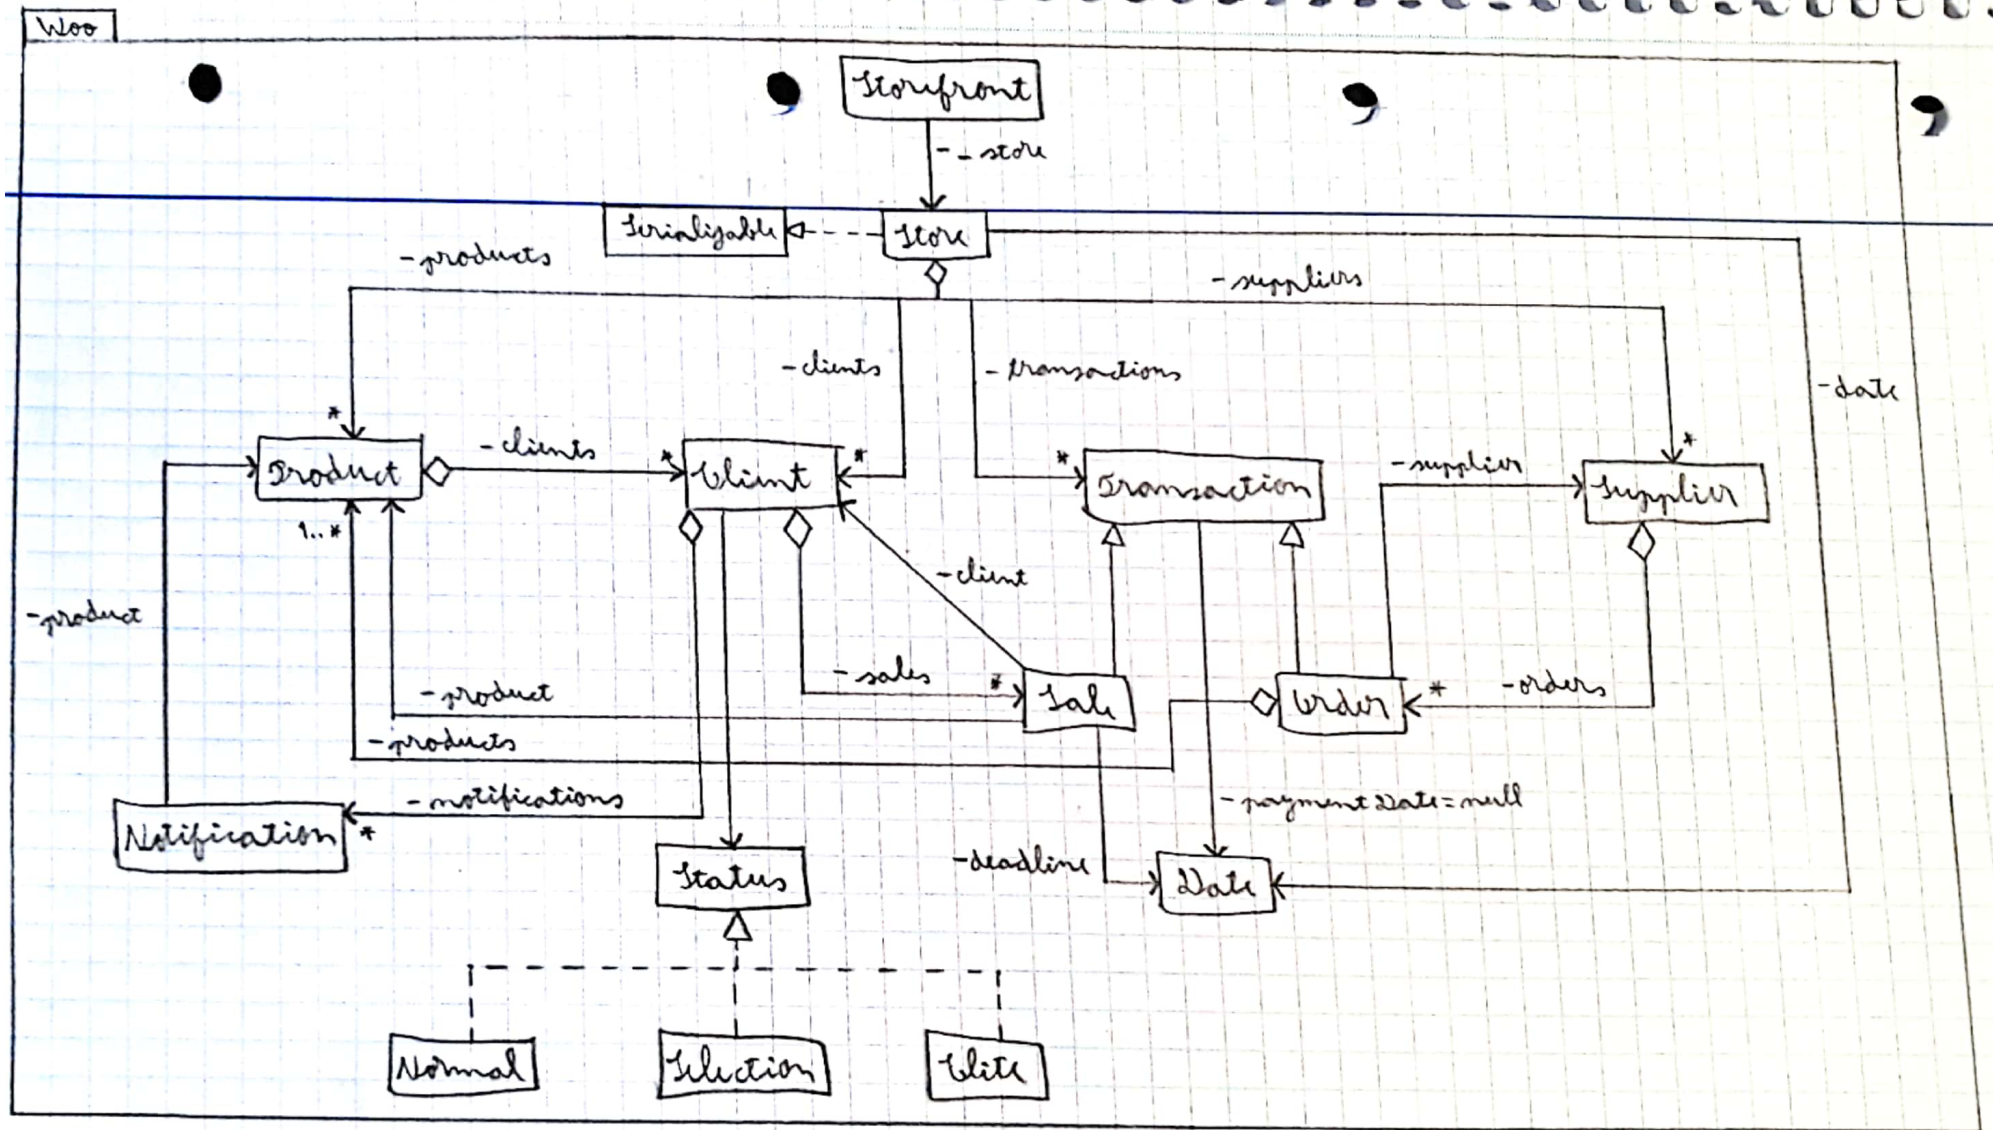 Woo
Storefront
- _store
Serializable
Store
-products
-suppliers
-clients
-transactions
-date
*
*
Product
-clients
*
Client
*
*
Transaction
-supplier
Supplier
1..*
-client
-product
-sales
*
Sale
Order
*
-orders
-product
-products
-notifications
*
Notification
-paymentDate=null
Status
-deadline
Date
Normal
Selection
Elite